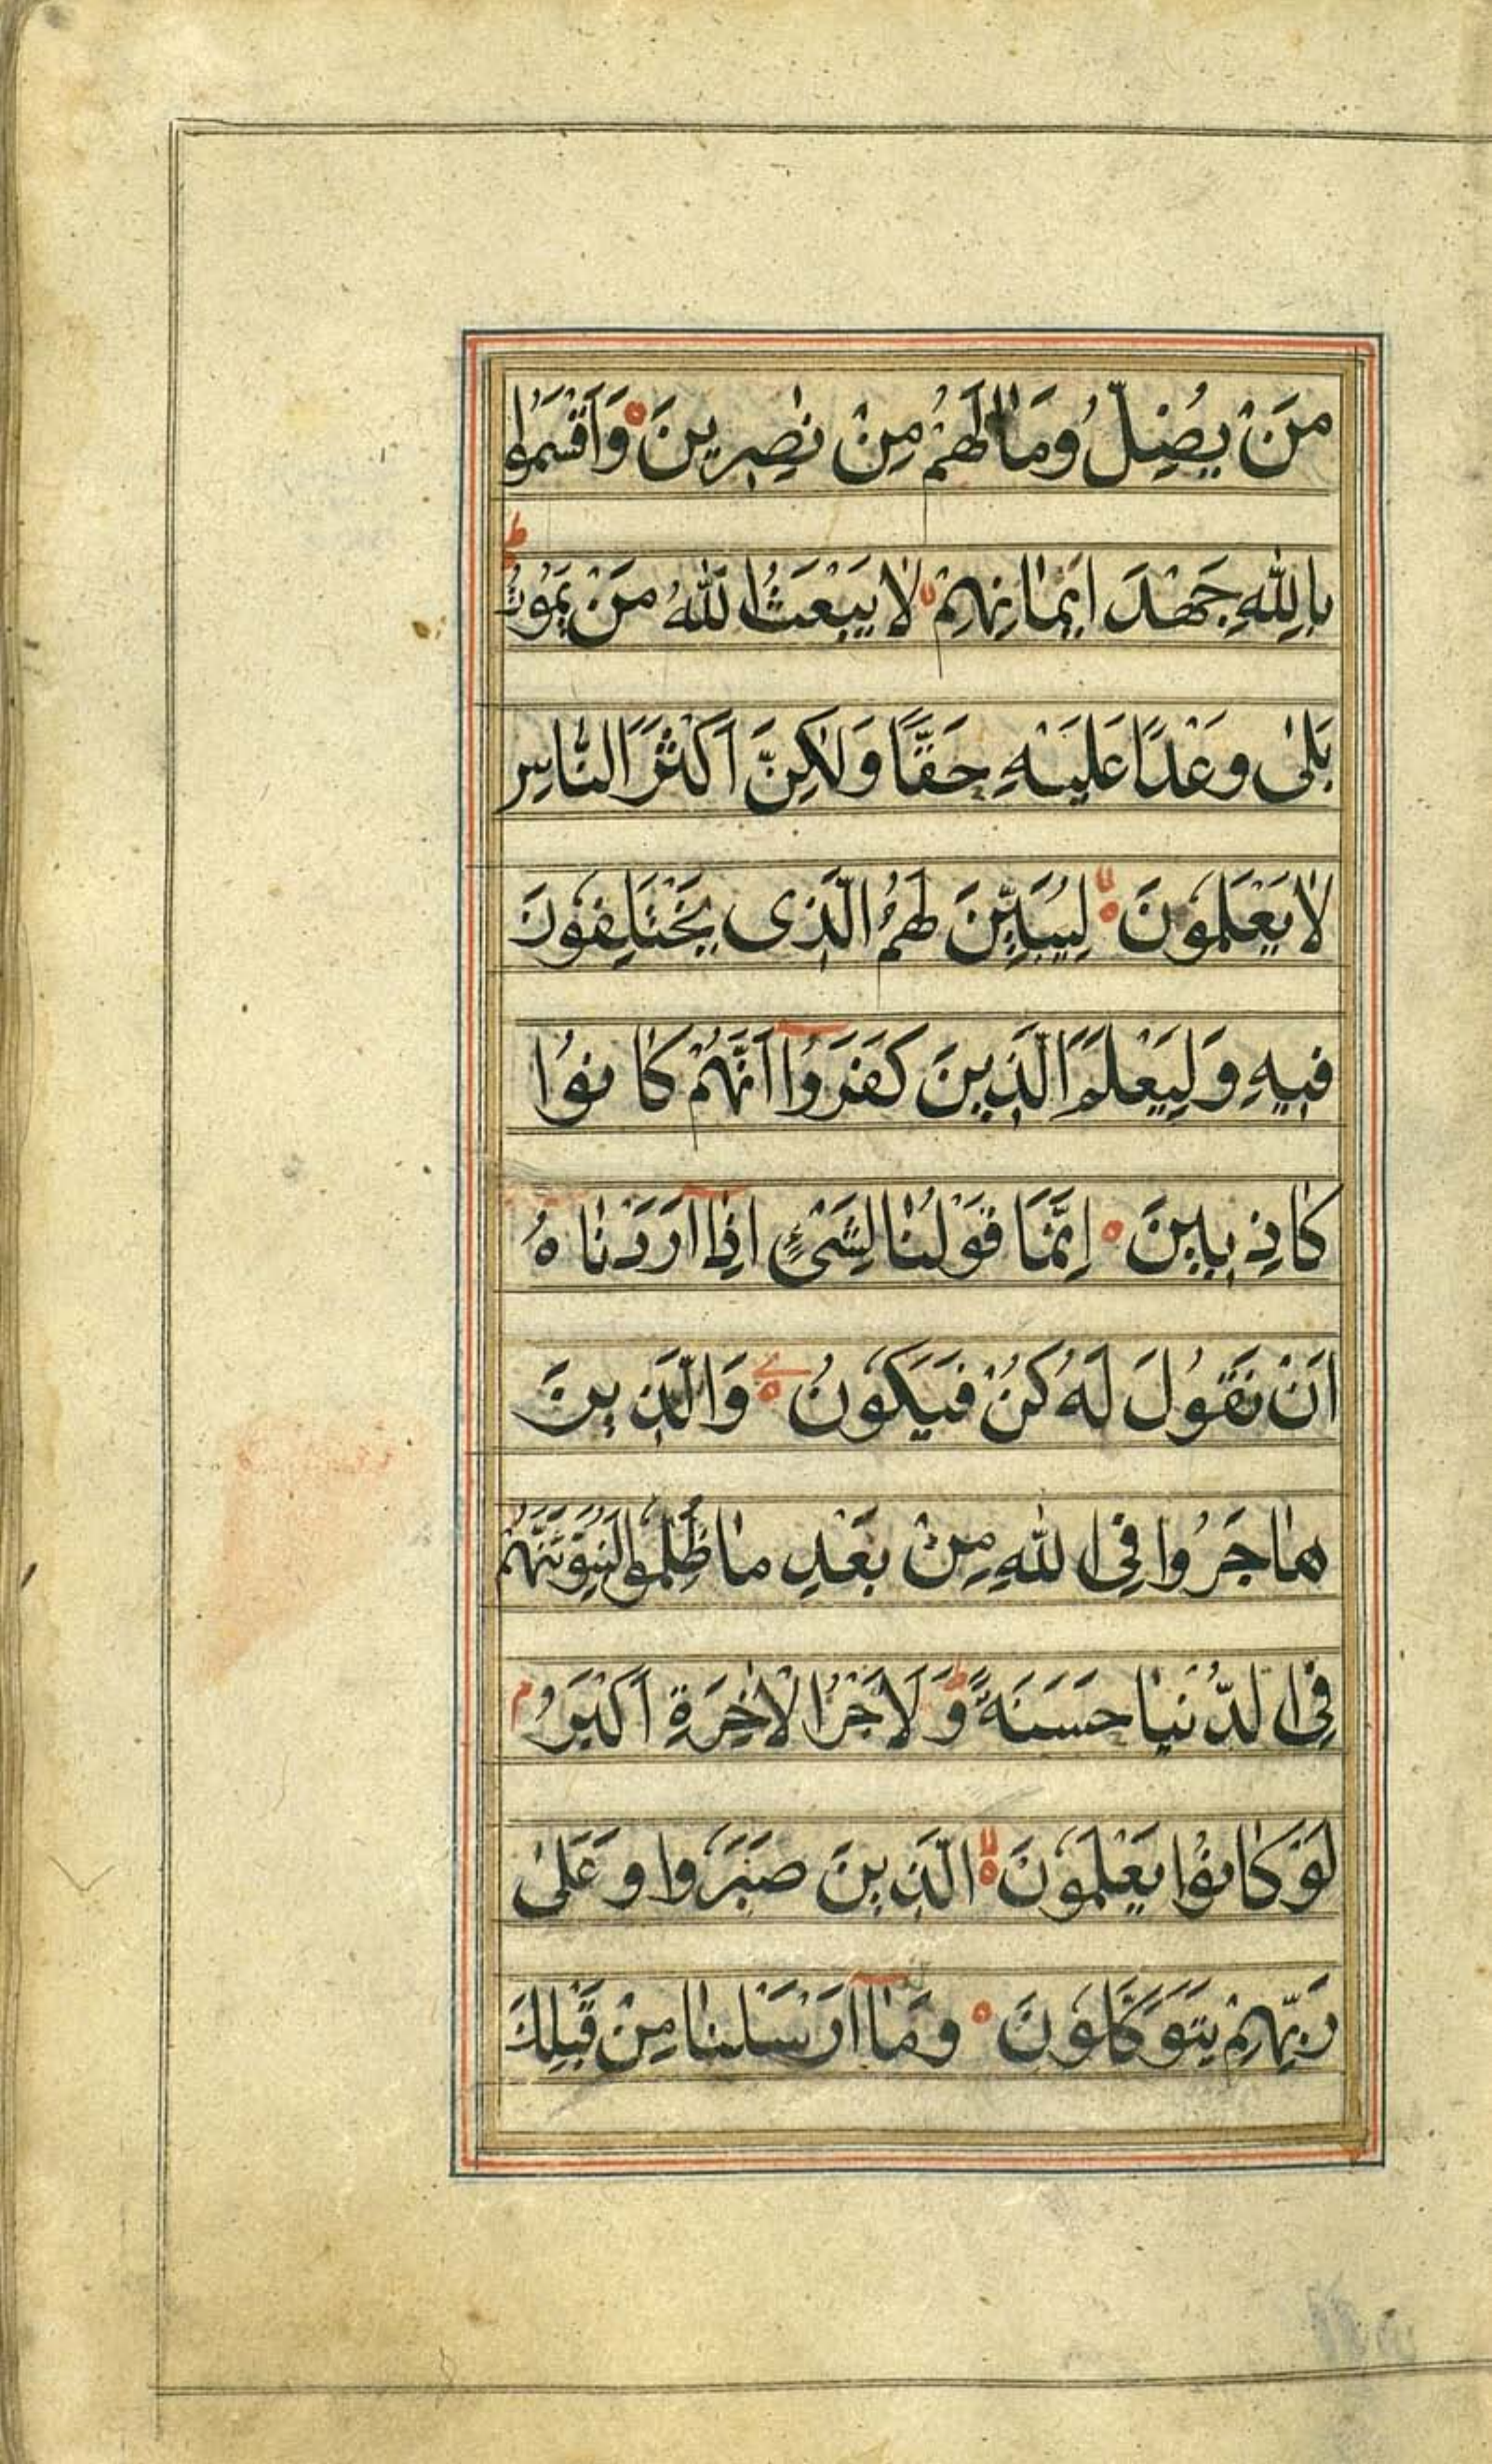 مَنْ يُضِلُّ وَمَا لَهُمْ مِنْ نٰصِرِينَ وَاَقْسَمُوا
بِاللّٰهِ جَهْدَ اَيْمَانِهِمْ لَا يَبْعَثُ اللّٰهُ مَنْ يَمُوتُ ط
بَلٰى وَعْدًا عَلَيْهِ حَقًّا وَلٰكِنَّ اَكْثَرَ النَّاسِ
لَا يَعْلَمُونَ لا لِيُبَيِّنَ لَهُمُ الَّذِى يَخْتَلِفُونَ
فِيهِ وَلِيَعْلَمَ الَّذِينَ كَفَرُوا اَنَّهُمْ كَانُوا
كَاذِبِينَ اِنَّمَا قَوْلُنَا لِشَىْءٍ اِذَا اَرَدْنَاهُ
اَنْ نَقُولَ لَهُ كُنْ فَيَكُونُ وَالَّذِينَ
هَاجَرُوا فِى اللّٰهِ مِنْ بَعْدِ مَا ظُلِمُوا لَنُبَوِّئَنَّهُمْ
فِى الدُّنْيَا حَسَنَةً ط وَلَاَجْرُ الْاٰخِرَةِ اَكْبَرُ م
لَوْ كَانُوا يَعْلَمُونَ لا الَّذِينَ صَبَرُوا وَعَلٰى
رَبِّهِمْ يَتَوَكَّلُونَ وَمَا اَرْسَلْنَا مِنْ قَبْلِكَ